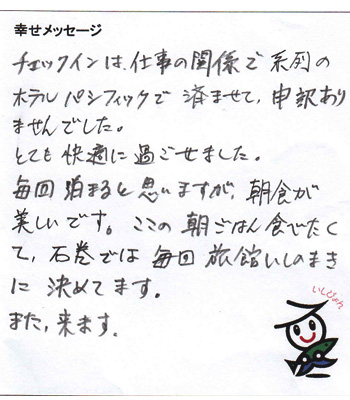 幸せメッセージ
チェックインは、仕事の関係で系列の
ホテルパシフィックで 済ませて、申訳あり
ませんでした。
とても快適に過ごせました。
毎回泊まると思いますが、朝食が
美しいです。ここの朝ごはん食べたく
て、石巻では毎回旅館いしのまき
に決めてます。
また、来ます。
いしぴょん